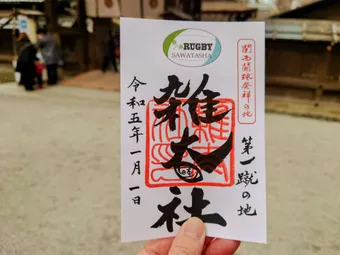 RUGBY
SAWATASHA
関西蹴球発祥の地
第一蹴の地
雑太社
令和五年一月一日